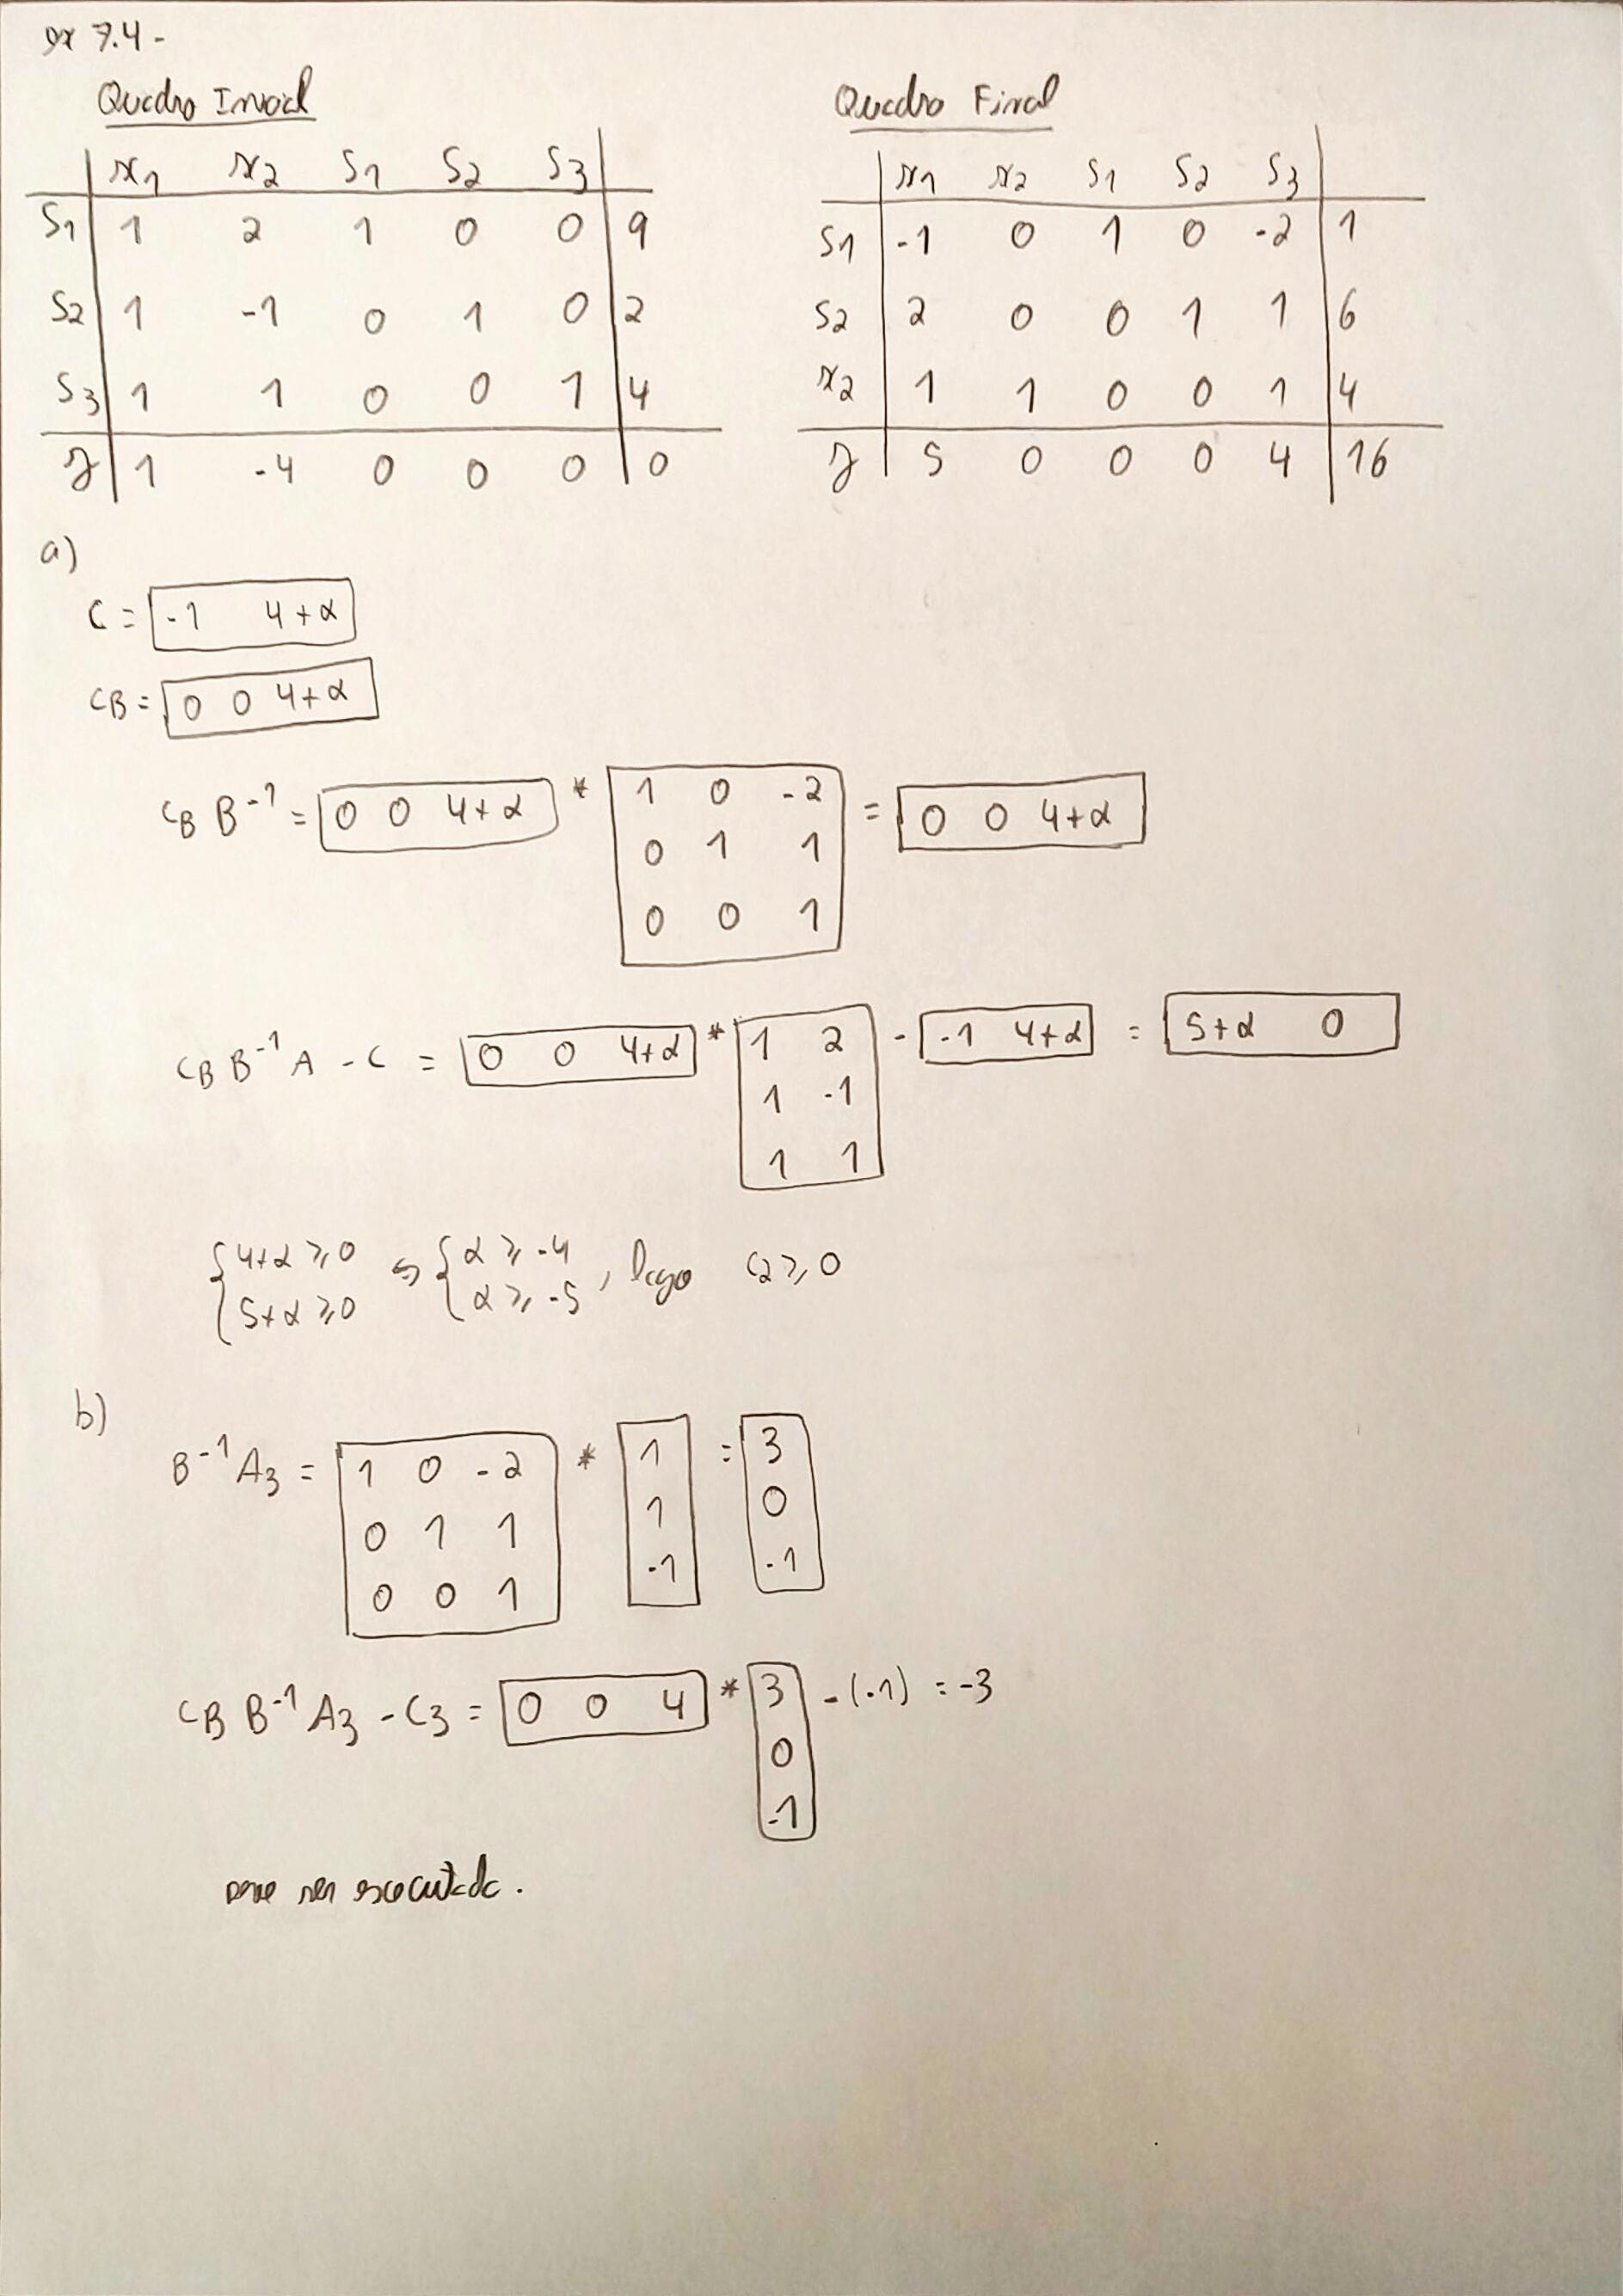 ex 7.4 -
Quadro Inicial
x1 x2 s1 s2 s3
s1 1 2 1 0 0 9
s2 1 -1 0 1 0 2
s3 1 1 0 0 1 4
z 1 -4 0 0 0 0
Quadro Final
x1 x2 s1 s2 s3
s1 -1 0 1 0 -2 1
s2 2 0 0 1 1 6
x2 1 1 0 0 1 4
z 5 0 0 0 4 16
a)
C = -1 4+α
CB = 0 0 4+α
CB B⁻¹ = 0 0 4+α * 1 0 -2 = 0 0 4+α
0 1 1
0 0 1
CB B⁻¹ A - C = 0 0 4+α * 1 2 - -1 4+α = 5+α 0
1 -1
1 1
{4+α ≥ 0 ⇔ {α ≥ -4 , logo c2 ≥ 0
5+α ≥ 0 α ≥ -5
b)
B⁻¹ A3 = 1 0 -2 * 1 = 3
0 1 1 1 0
0 0 1 -1 -1
CB B⁻¹ A3 - C3 = 0 0 4 * 3 - (-1) = -3
0
-1
deve ser executada.